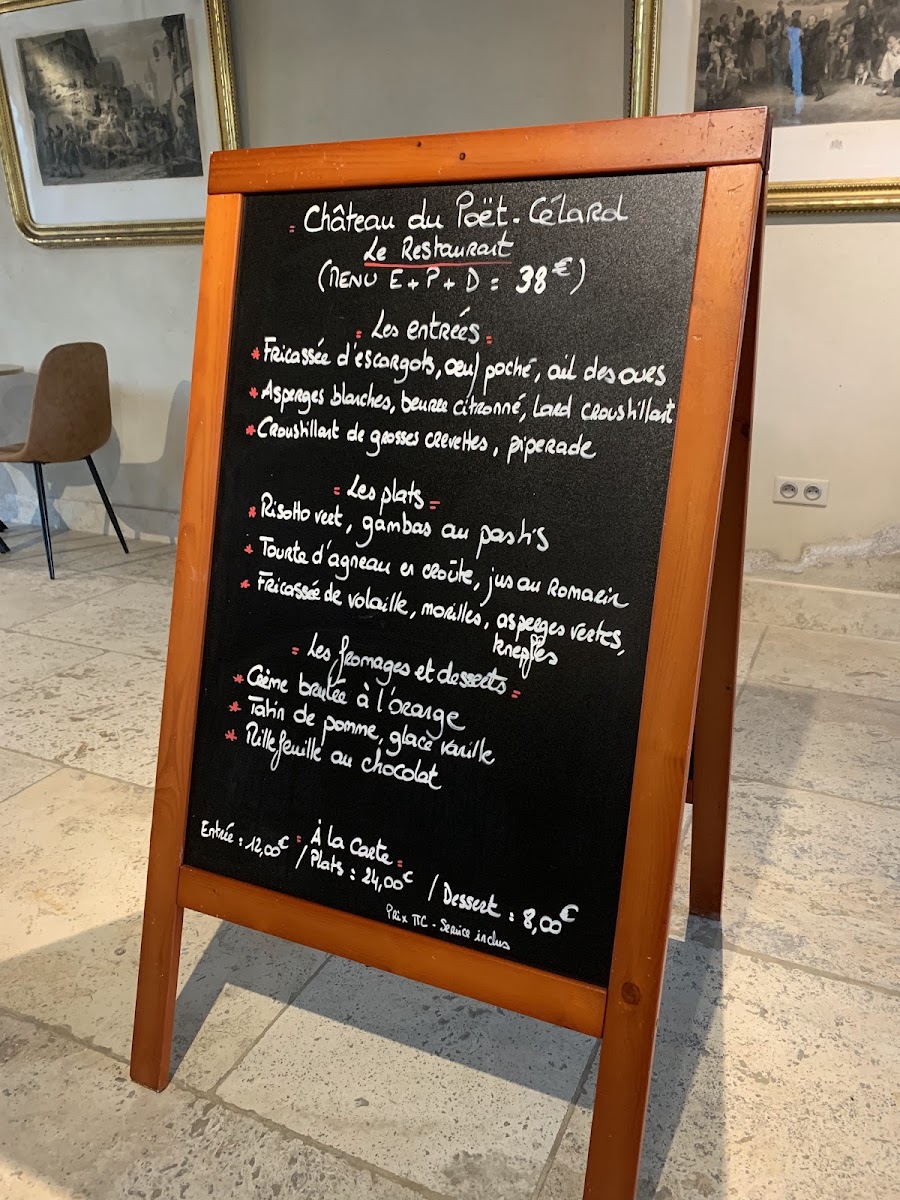 Château du Poët-Célard
Le Restaurant
(MENU E+P+D = 38€)
= Les entrées =
* Fricassée d'escargots, œuf poché, ail des ours
* Asperges blanches, beurre citronné, lard croustillant
* Croustillant de grosses crevettes, piperade
= Les plats =
* Risotto vert, gambas au pastis
* Tourte d'agneau en croûte, jus au romarin
* Fricassée de volaille, morilles, asperges vertes,
knepfles
= Les fromages et desserts =
* Crème brulée à l'orange
* Tatin de pomme, glace vanille
* Millefeuille au chocolat
= À la Carte =
Entrée : 12,00€ / Plats : 24,00€ / Dessert : 8,00€
Prix TTC - Service inclus